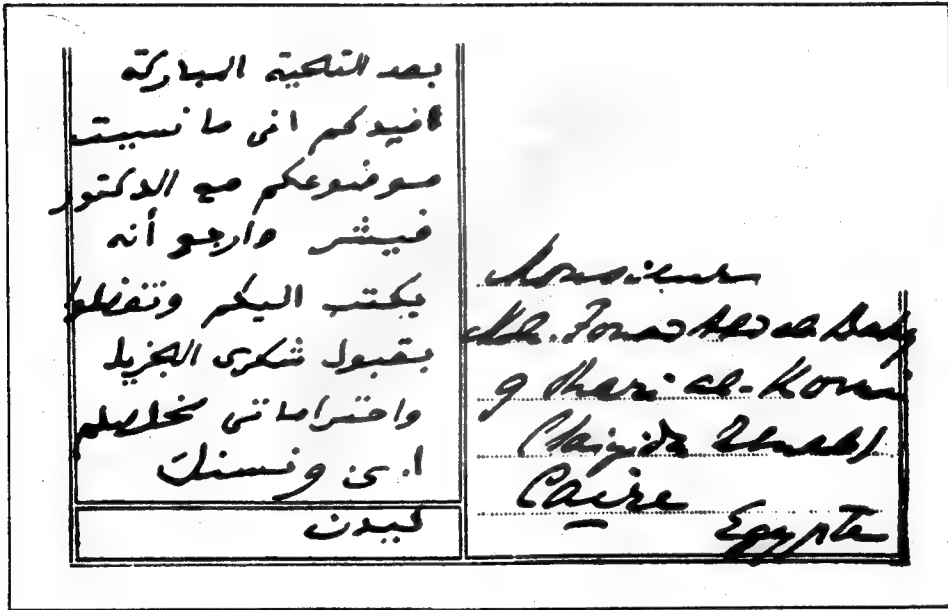 بعد التحية المباركة
افيدكم انى ما نسيت
موضوعكم مع الدكتور
فيشر وارجو أنه
يكتب اليكم وتفضلوا
بقبول شكرى الجزيل
واحتراماتى مخلصكم
ا. ى ونسنك
ليدن
Monsieur
Moh. Fouad Abd al-Baky
9 Shari al-Komi
(Saiyida Zeinab)
Caire
Egypte